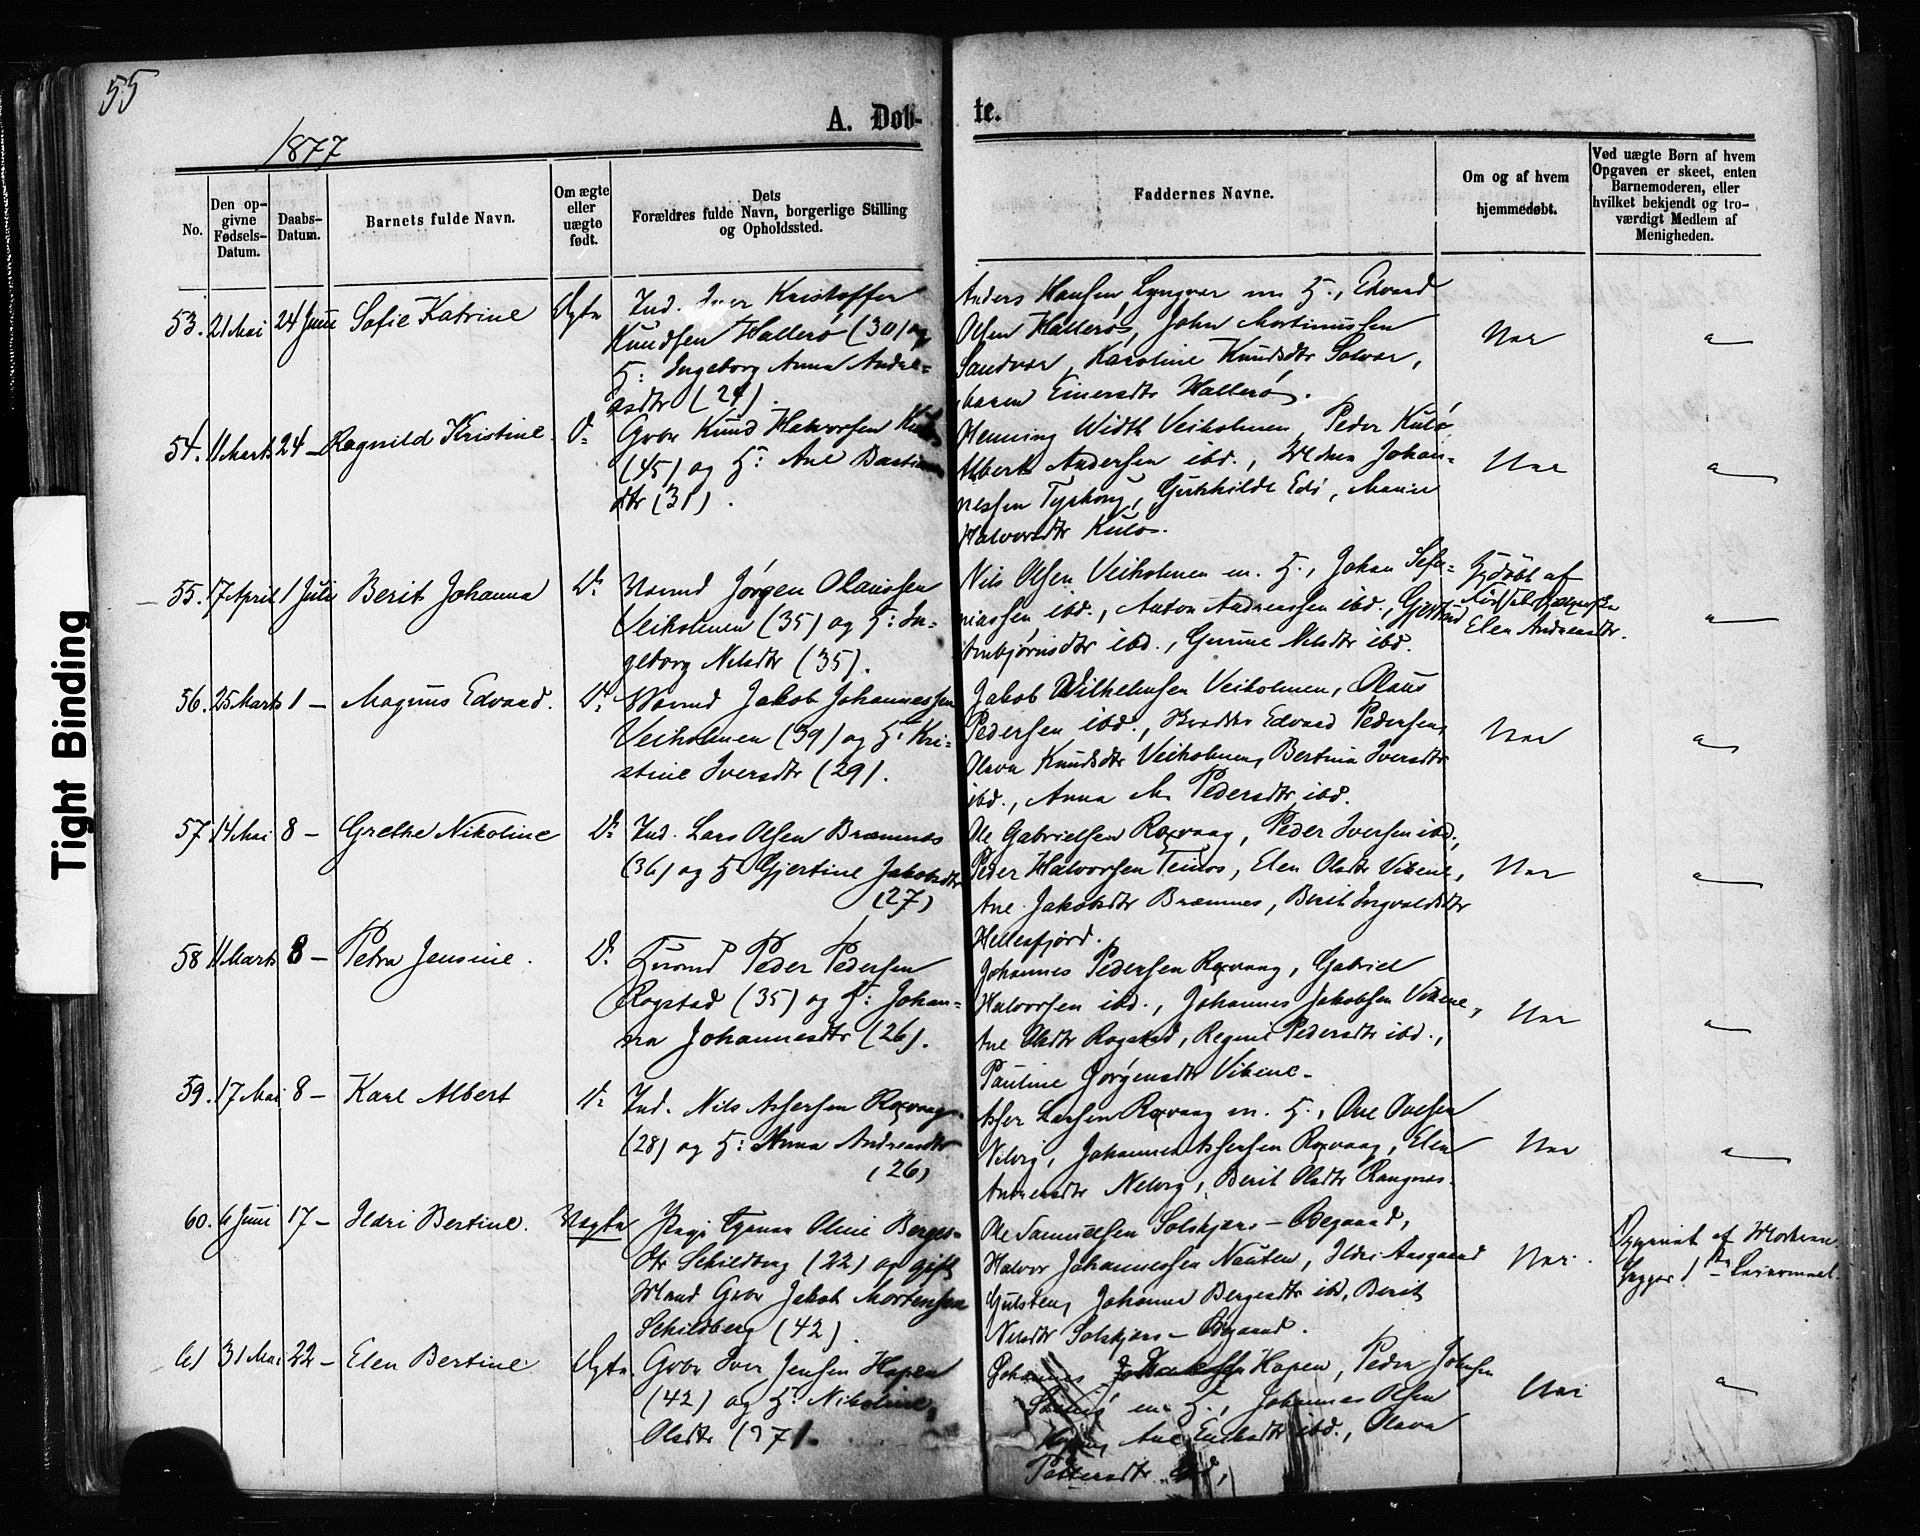 55
1877
A. Døb-
te.
No.
Den op-
givne
Fødsels-
Datum.
Daabs-
Datum.
Barnets fulde Navn.
Om ægte
eller
uægte
født.
Dets
Forældres fulde Navn, borgerlige Stilling
og Opholdssted.
Faddernes Navne.
Om og af hvem
hjemmedøbt.
Ved uægte Børn af hvem
Opgaven er skeet, enten
Barnemoderen, eller
hvilket bekjendt og tro-
værdigt Medlem af
Menigheden.
Tight Binding
53. 21 Mai 24 Juni Sofie Katrine Ægte
Ind. Iver Kristoffer
Knudsen Hallerø (30) og
H: Ingeborg Anna Andre-
asdtr (24).
Anders Hansen Lyngvær m H., Edvard
Olsen Hallerø, John Martinussen
Sandvær, Karoline Knudsdtr Solvær,
Einersdtr Hallerø.
Nei
"
54. 11 Marts 24 - Ragnild Kristine D:
Gbr Knud Halvorsen Kulø
(45) og H: Ane Bastians
dtr (31).
Henning Width Veiholmen, Peder Kulø,
Albert Andersen ibd., Johan-
nessen Tyrhoug, Edø, Marie
Halvorsdtr Kulø.
Nei
"
55. 17 April 1 Juli Berit Johanna D:
Jørgen Olaussen
Veiholmen (35) og H: In-
geborg Nilsdtr (35).
Nils Olsen Veiholmen m. H., Johan Sefa-
niassen ibd., Anton Andreassen ibd.,
Arnbjørnsdtr ibd., Gurine Nilsdtr ibd.
Hjdøbt af
Elen Andreasdtr.
"
56. 25 Marts 1 - Magnus Edvard. D:
Jakob Johannessen
Veiholmen (39) og H: Kri-
stine Iversdtr (29).
Jakob Wilhelmsen Veiholmen, Olaus
Pedersen ibd., Edvard Pedersen,
Olava Knudsdtr Veiholmen, Bertina Iversdtr
ibd., Anna M. Pedersdtr ibd.
Nei
"
57 14 Mai 8 - Grethe Nikoline D:
Ind. Lars Olsen Bræmnes
(36) og H Gjertine Jakobsdtr
(27)
Ole Gabrielsen Roxvaag, Peder Iversen ibd.,
Peder Halvorsen Teinos, Elen Olsdtr Vikene,
Ane Jakobsdtr Bræmnes, Berit Ingvaldsdtr
Hellesfjord.
Nei
"
58 11 Marts 8 - Petra Jensine. D:
Peder Pedersen
Rogstad (35) og H: Johan-
na Johannesdtr (26).
Johannes Pedersen Roxvaag, Gabriel
Halvorsen ibd., Johannes Jakobsen Vikene,
Ane Olsdtr Rogstad, Regine Pedersdtr ibd.,
Pauline Jørgensdtr Vikene.
Nei
"
59. 17 Mai 8 - Karl Albert D:
Ind. Nils Assersen Roxvaag
(28) og H: Anna Andreasdtr
(26)
Asser Larsen Roxvaag m. H., Ove Ovesen
Nelvig, Johannes Assersen Roxvaag, Elen
Andreasdtr Nelvig, Berit Olsdtr Rangnes.
Nei
"
60. 6 Juni 17 - Ildri Bertine. Uægte
Pige Oline Berges-
dtr Schildberg (22) og gift
Mand Gbr Jakob Mortensen
Schildberg (42).
Ole Samuelsen Solskjærs-Øegaard,
Halvor Johannessen Nausten, Ildri Aasgaard
Gulsten, Johanna Bergesdtr ibd, Berit
Nilsdtr Solskjærs-Øegaard.
Nei.
Opgivet af
61 31 Mai 22 - Elen Bertine Ægte.
Gbr Iver Jensen Hopen
(42) og H: Nikoline
Olsdtr (37).
Johannes Hopen, Peder Johnsen
m H., Johannes Olsen
Hopen, Ane ibd., Olava
Pettersdtr ibd.
Nei
"